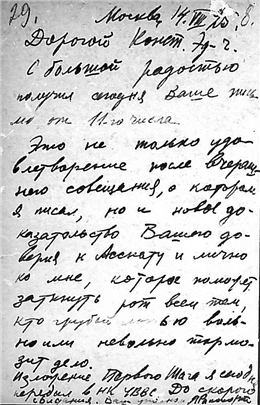 29. Москва 14.VIII 8.
Дорогой Конст. Эд-ч.
С большой радостью
получил сегодня Ваше пись-
мо от 11-го числа
Это не только удо-
влетворение после вчераш-
него совещания, о котором
я писал, но и новое до-
казательство Вашего до-
верия к Асснату и лично
ко мне, которое поможет
заткнуть рот всем тем,
кто грубой ью воль-
но или невольно тормо-
зит дело.
Изложение Первого Шага я сегодня
передал в НК УВВС До скорого
свидания. Ваш